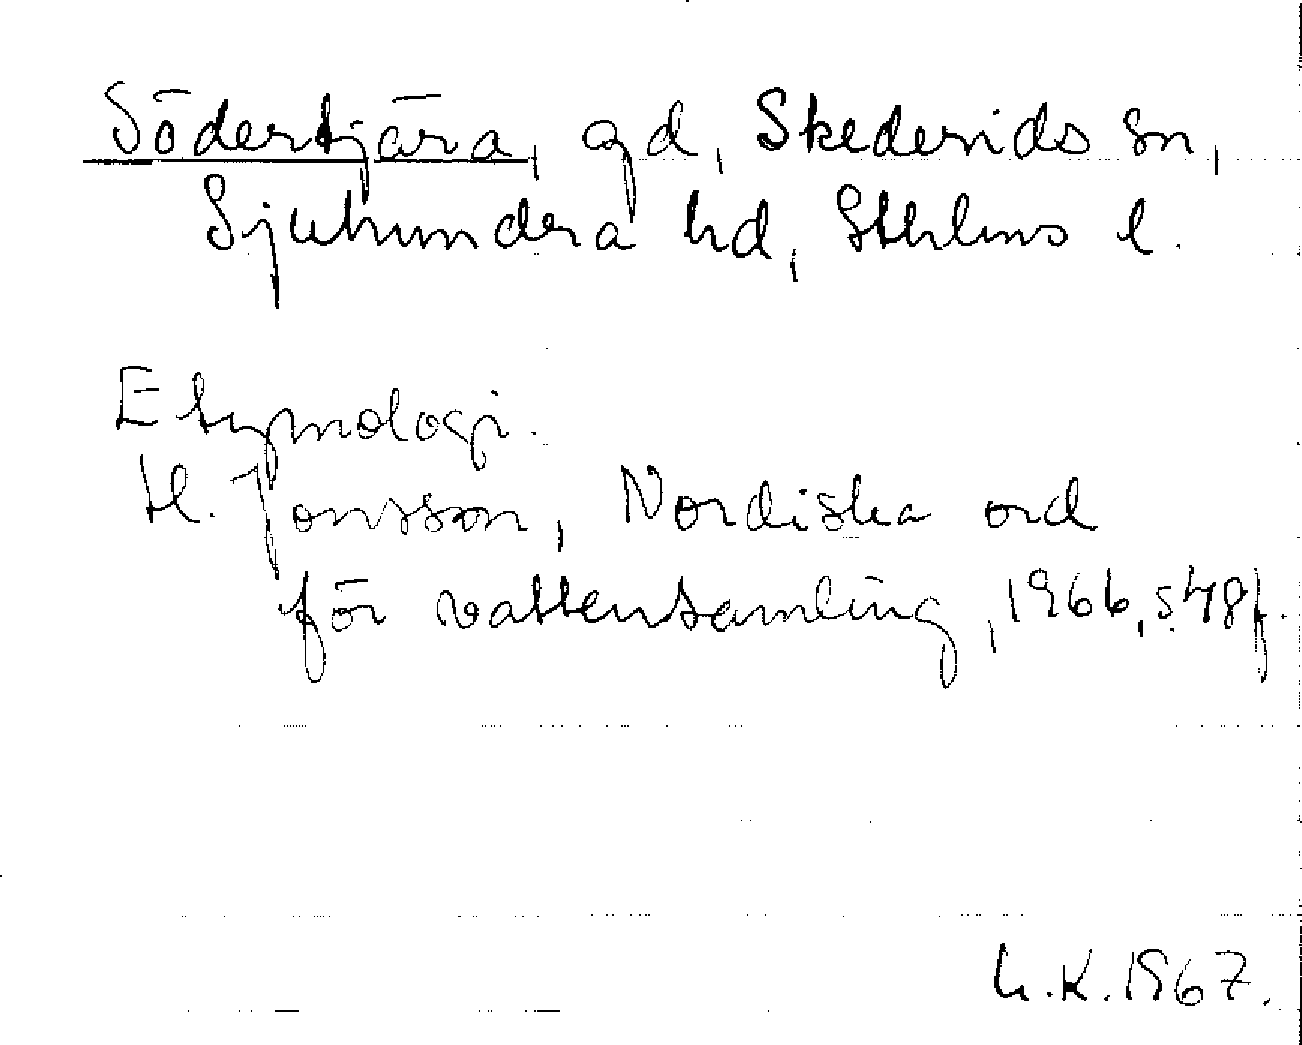 Södertjära, gd, Skederids sn,
Sjuhundra hd, Sthlms l.
Etymologi.
H. Jonsson, Nordiska ord
för vattensamling, 1966, s. 48 f.
h.K. 1967.